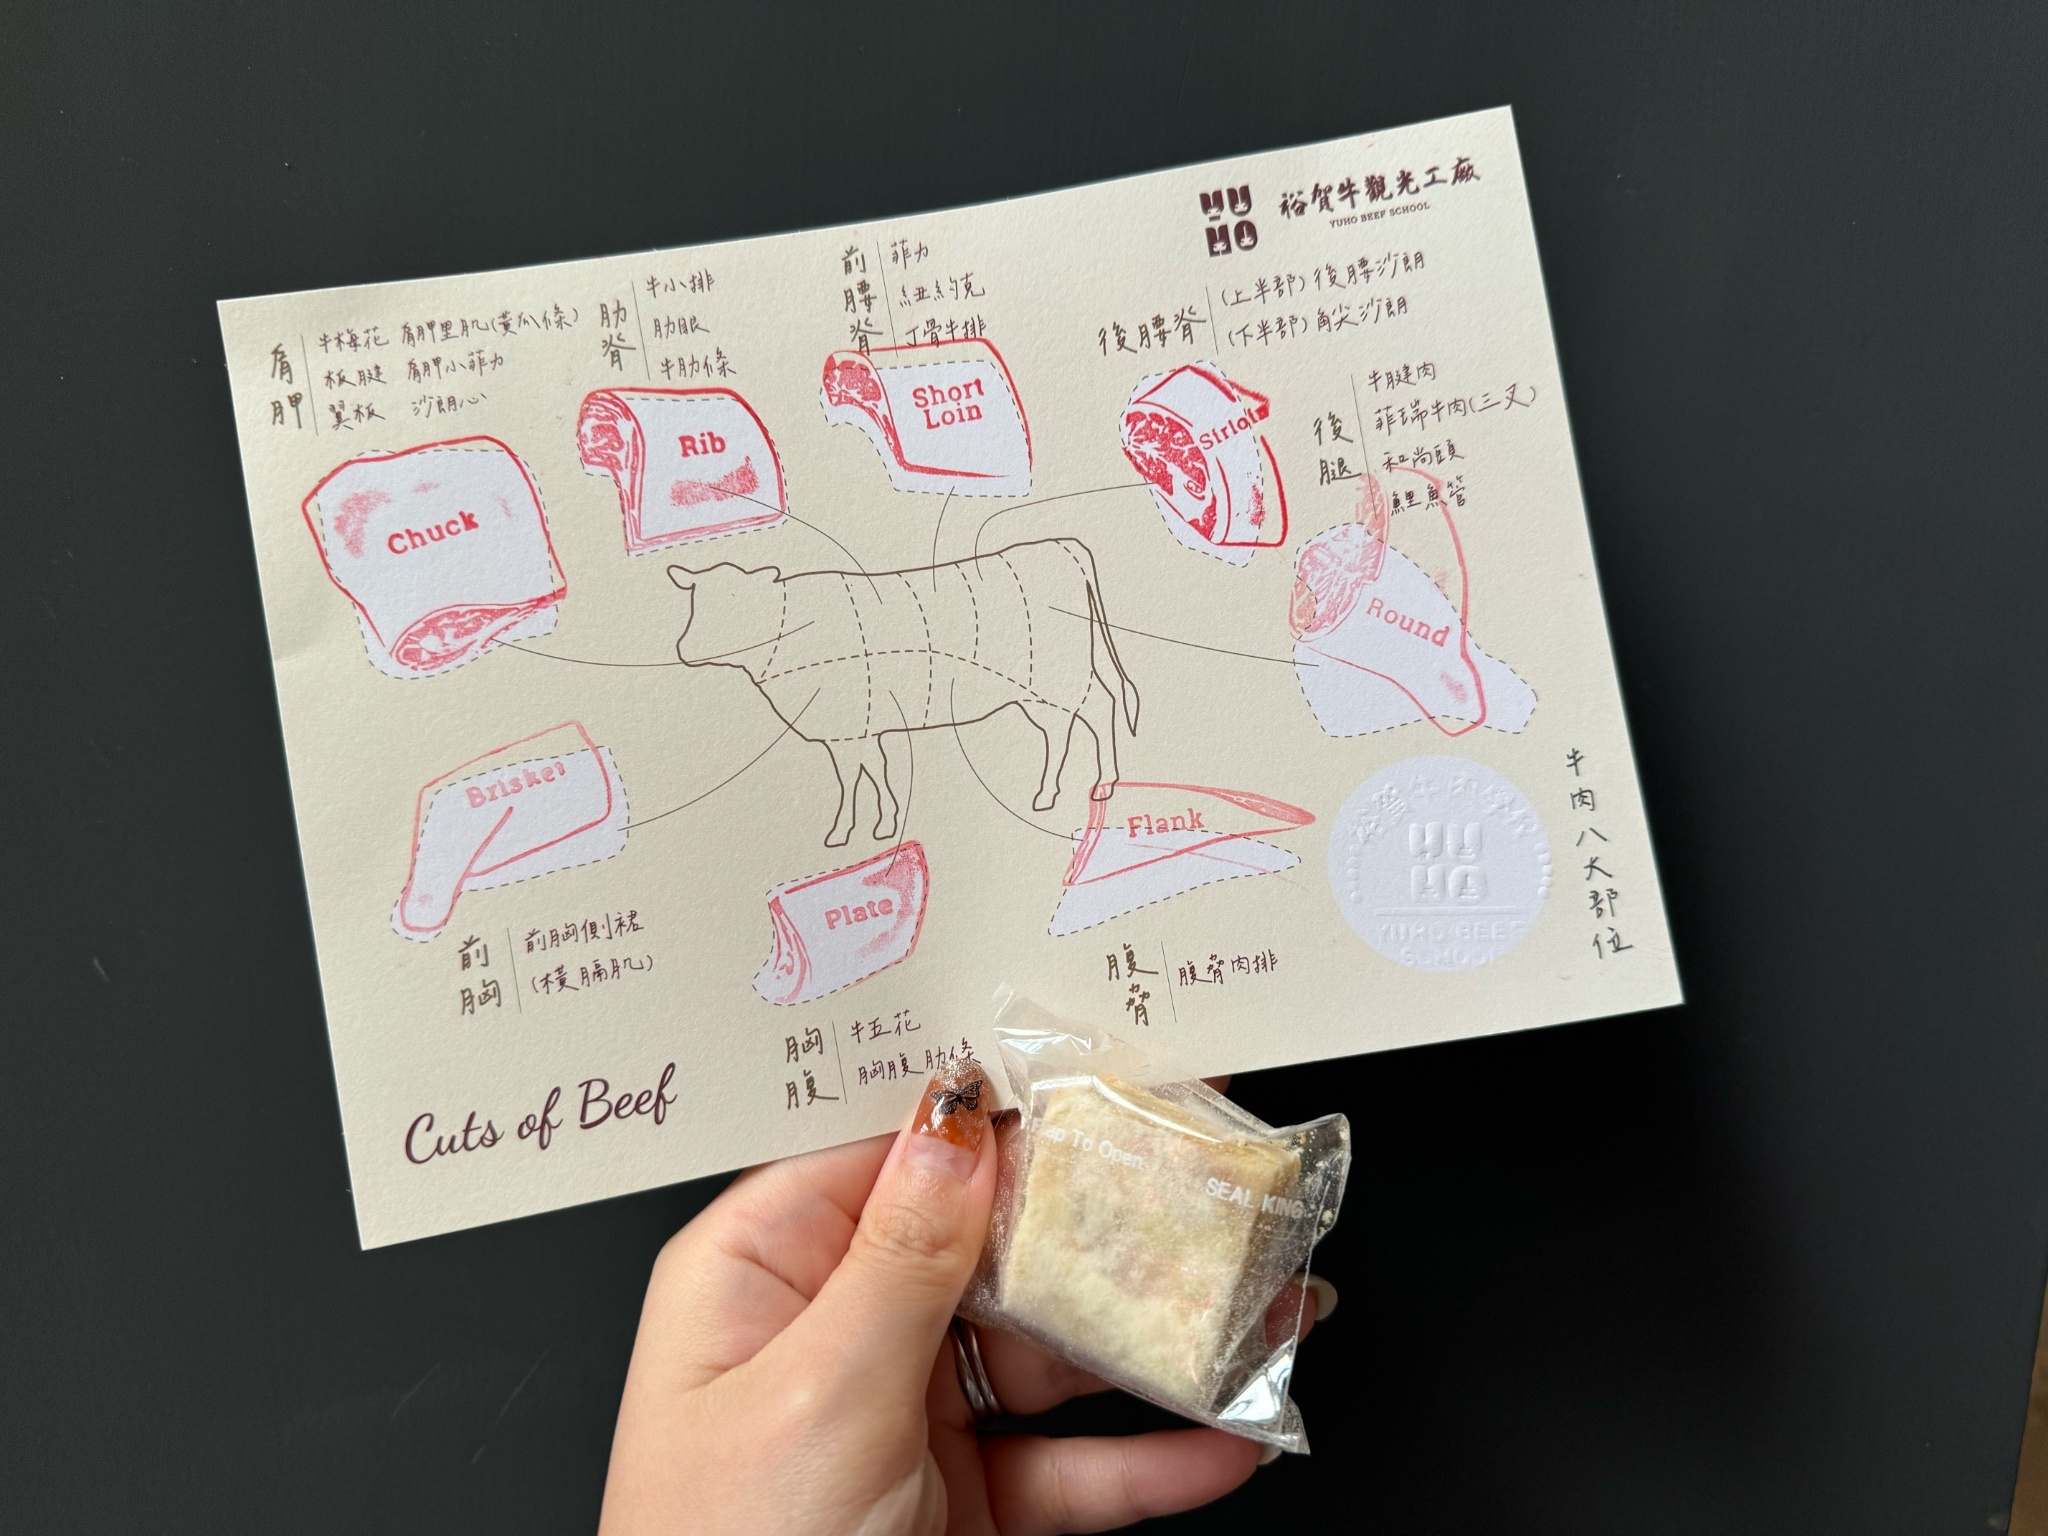 YUHO
裕賀牛觀光工廠
YUHO BEEF SCHOOL
肩胛
牛梅花 肩胛里肌(黃瓜條)
板腱 肩胛小菲力
翼板 沙朗心
Chuck
肋脊
牛小排
肋眼
牛肋條
Rib
前腰脊
菲力
紐約克
丁骨牛排
Short
Loin
後腰脊
(上半部)後腰沙朗
(下半部)角尖沙朗
Sirloin
後腿
牛腱肉
菲瑞牛肉(三叉)
和尚頭
鯉魚管
Round
Brisket
前胸
前胸側裙
(橫膈肌)
Plate
胸腹
牛五花
胸腹肋條
Flank
腹脅
腹脅肉排
YUHO
YUHO BEEF
SCHOOL
牛肉八大部位
Cuts of Beef
To Open
SEAL KING